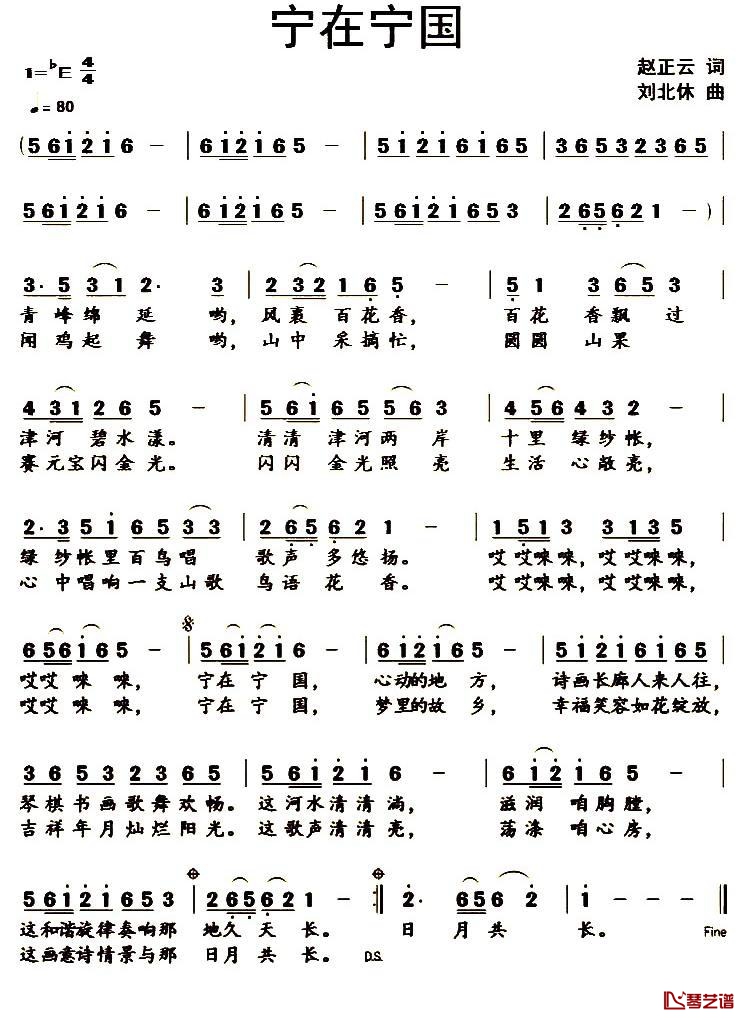 宁在宁国
1=♭E 4/4
赵正云 词
♩= 80
刘北休 曲
(5 6 1 2 1 6 － | 6 1 2 1 6 5 － | 5 1 2 1 6 1 6 5 | 3 6 5 3 2 3 6 5 |
5 6 1 2 1 6 － | 6 1 2 1 6 5 － | 5 6 1 2 1 6 5 3 | 2 6 5 6 2 1 － ) |
3· 5 3 1 2· 3 | 2 3 2 1 6 5 － | 5 1 3 6 5 3 |
青峰绵延 哟, 风裹百花香, 百花香飘过
闻鸡起舞 哟, 山中采摘忙, 圆圆山果
4 3 1 2 6 5 － | 5 6 1 6 5 5 6 3 | 4 5 6 4 3 2 － |
津河碧水漾。 清清津河两岸 十里绿纱帐,
赛元宝闪金光。 闪闪金光照亮 生活心敞亮,
2· 3 5 1 6 5 3 3 | 2 6 5 6 2 1 － | 1 5 1 3 5 3 5 3 |
绿纱帐里百鸟唱 歌声多悠扬。 哎哎唻唻, 哎哎唻唻,
心中唱响一支山歌 鸟语花香。 哎哎唻唻, 哎哎唻唻,
6 5 6 1 6 5 － | 5 6 1 2 1 6 － | 6 1 2 1 6 5 － | 5 1 2 1 6 1 6 5 |
哎哎唻唻, 宁在宁国, 心动的地方, 诗画长廊人来人往,
哎哎唻唻, 宁在宁国, 梦里的故乡, 幸福笑容如花绽放,
3 6 5 3 2 3 6 5 | 5 6 1 2 1 6 － | 6 1 2 1 6 5 － |
琴棋书画歌舞欢畅。 这河水清清淌, 滋润咱胸膛,
吉祥年月灿烂阳光。 这歌声清清亮, 荡涤咱心房,
5 6 1 2 1 6 5 3 | 2 6 5 6 2 1 － :| 2· 6 5 6 2 | 1 － － － |
这和谐旋律奏响那 地久天长。 日月共长。 Fine
这画意诗情景与那 日月共长。 D.S.
琴艺谱